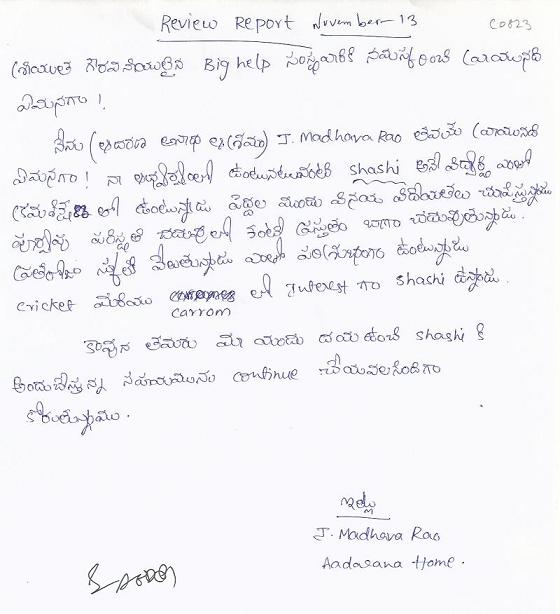 Review Report November-13
C0823
శ్రీయుత గౌరవనీయులైన Big help సంస్థవారికి నమస్కరించి వ్రాయునది
ఏమనగా !
నేను (ఆదరణ అనాథ ఆశ్రమం) J. Madhava Rao తమకు వ్రాయునది
ఏమనగా ! నా ఆధ్వర్యంలో ఉంటున్నటువంటి shashi అనే విద్యార్థి ఎంతో
క్రమశిక్షణతో ఉంటున్నాడు పెద్దల ముందు వినయ విదేయతలు చూపిస్తున్నాడు
పూర్వపు పరిస్థితి చదువులో కంటే ప్రస్తుతం బాగా చదువుతున్నాడు.
ప్రతిరోజు స్కూల్‌కి వెలుతున్నాడు ఎంతో పరిశుభ్రంగా ఉంటున్నాడు
cricket మరియు carrom లో Interest గా shashi ఉన్నాడు.
కావున తమరు మా యందు దయ ఉంచి shashi కి
అందుచేస్తున్న సహయమును continue చేయవలసిందిగా
కోరుతున్నాము.
ఇట్లు
J. Madhava Rao
Aadarana Home.